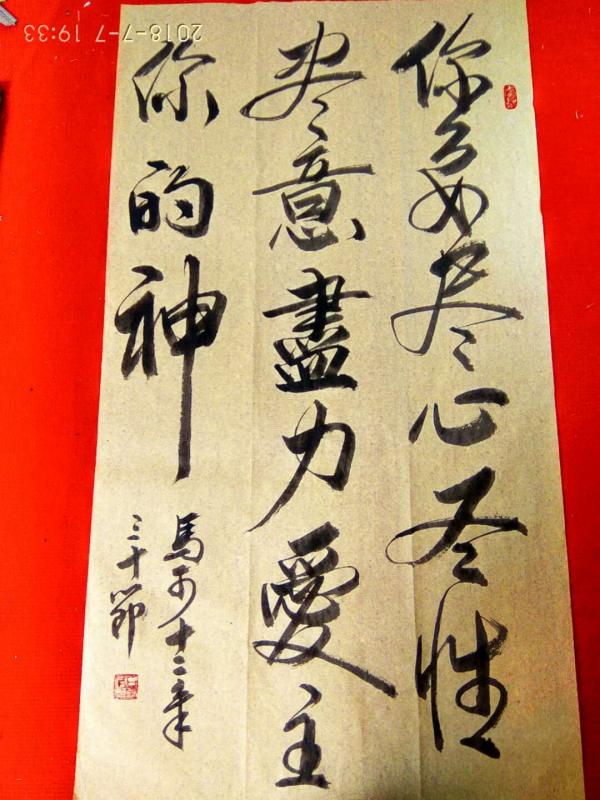 你要尽心尽性
尽意盡力愛主
你的神
馬可十二章
三十節
2018-7-7 19:33